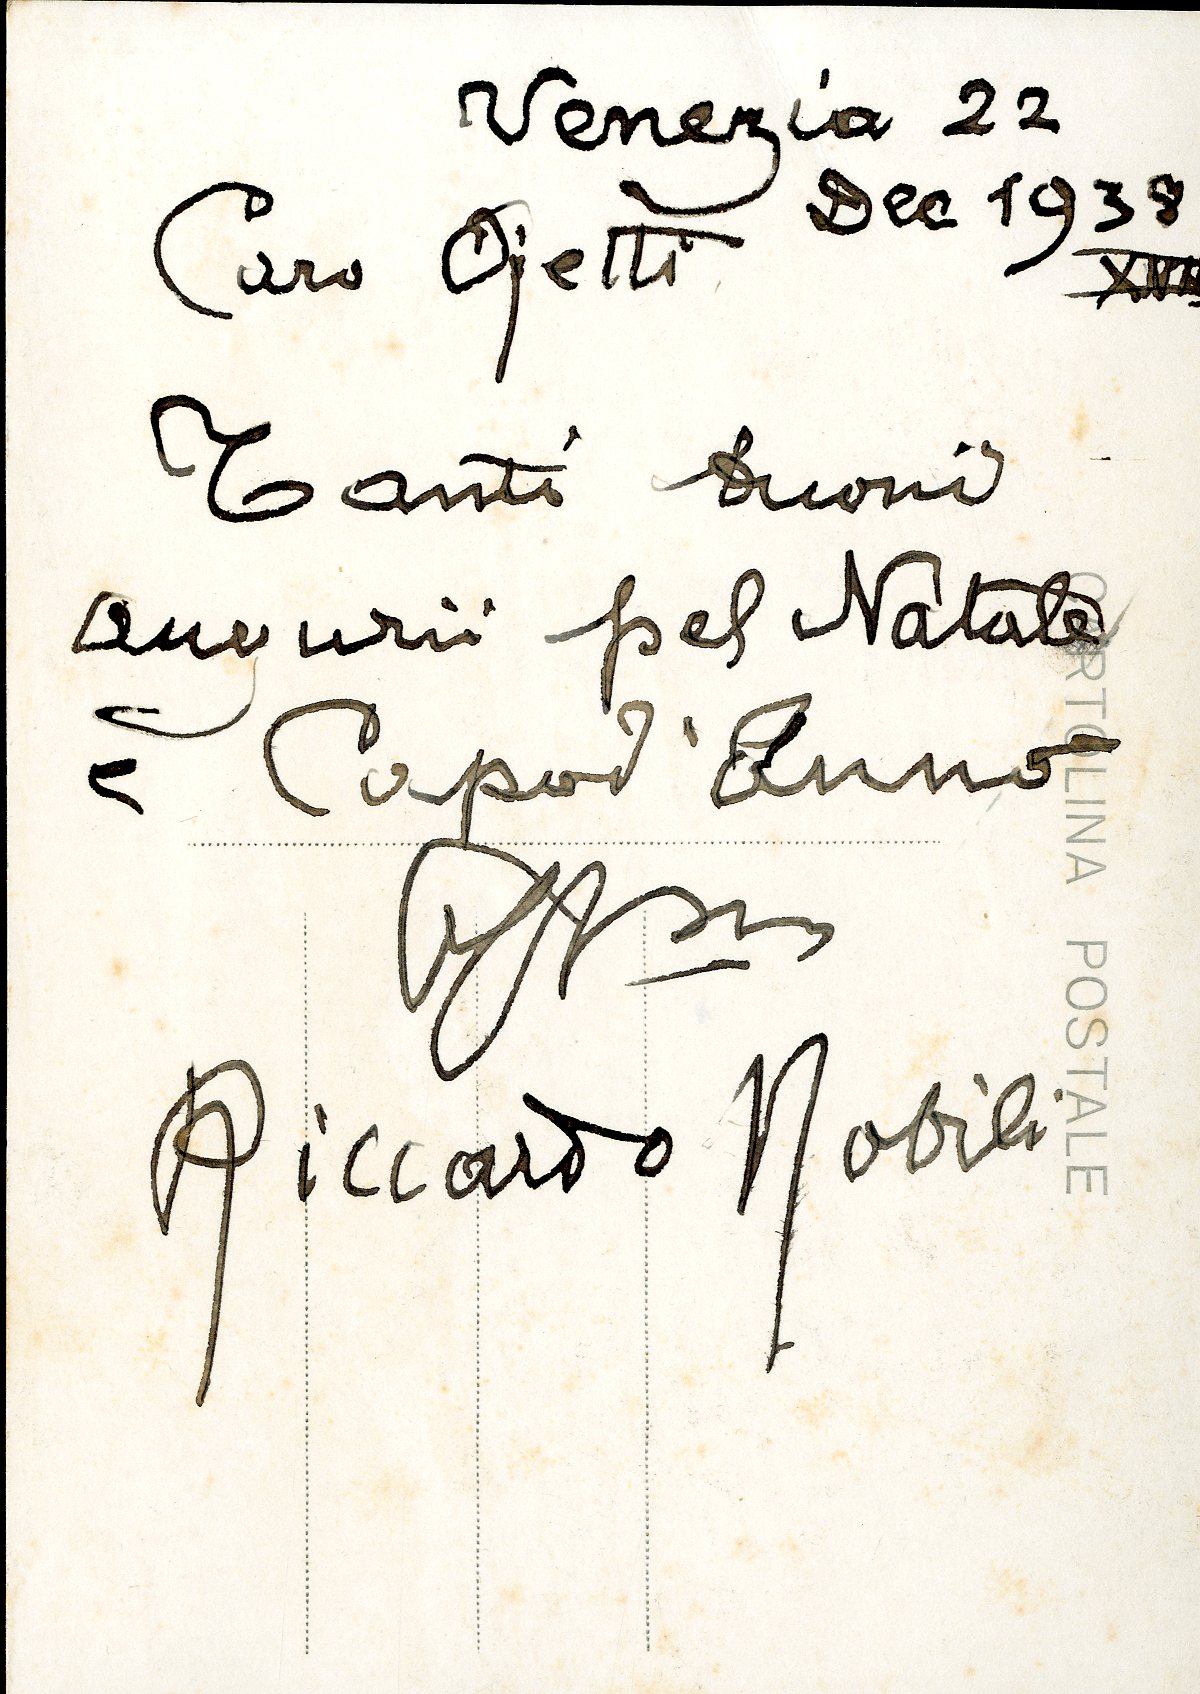 Venezia 22
Dec 1938
XVII
Caro Ojetti
Tanti buoni
augurii pel Natale
e Capod'Anno
Riccardo Nobili
CARTOLINA POSTALE